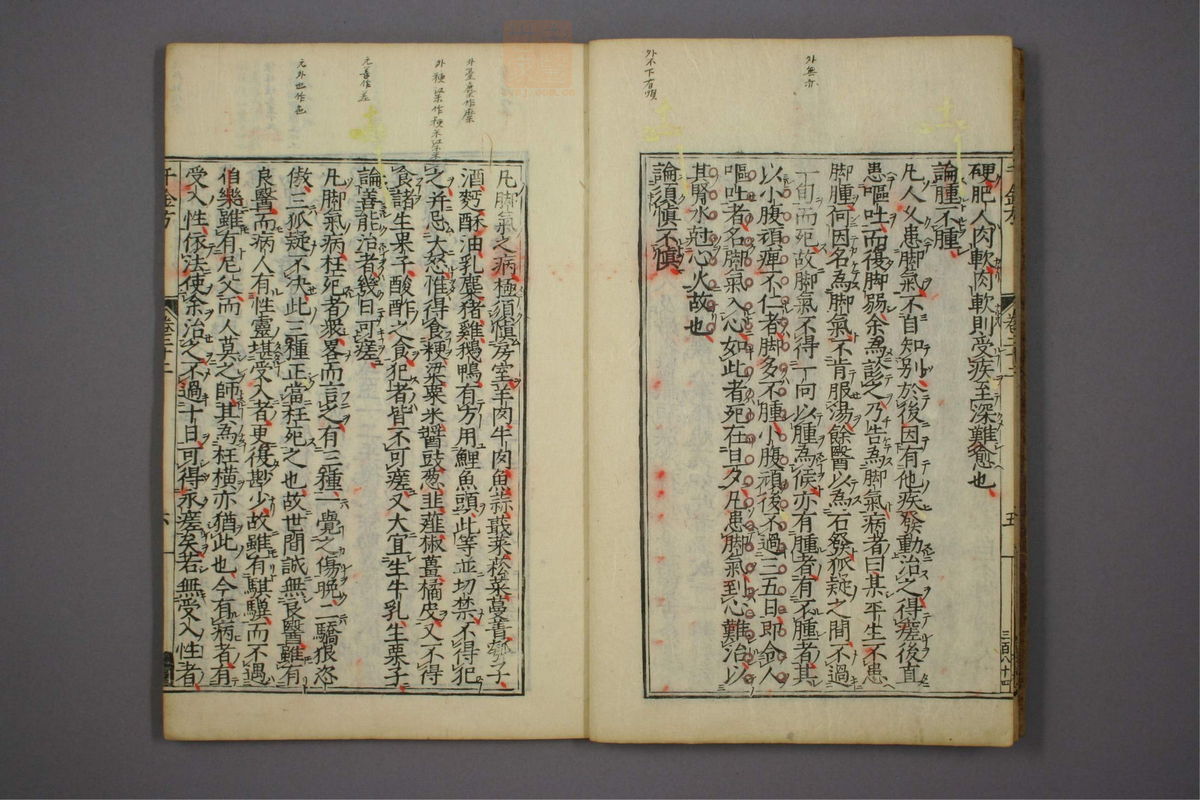 外無亦
外不下有頃
硬肥人肉軟肉軟則受疾至深難愈也
論腫不腫
凡人久患脚氣不自知別於後因有他疾發動治之得瘥後直
患嘔吐而復脚弱余為診之乃告為脚氣病者曰某平生不患
脚腫何因名為脚氣不肯服湯餘醫以為石發狐疑之間不過
一旬而死故脚氣不得一向以腫為候亦有腫者有不腫者其
以小腹頑痺不仁者脚多不腫小腹頑後不過三五日即令人
嘔吐者名脚氣入心如此者死在旦夕凡患脚氣到心難治以
其腎水尅心火故也
論須慎不慎
五
三百八十四
外臺蔓作糜
元善作差
元外也作色
凡脚氣之病極須慎房室羊肉牛肉魚蒜蕺菜菘菜蔓青瓠子
酒麪酥油乳麋猪雞鵝鴨有方用鯉魚頭此等並切禁不得犯
之并忌大怒惟得食粳粱粟米醬豉葱韭薤椒薑橘皮又不得
食諸生果子酸酢之食犯者皆不可瘥又大宜生牛乳生栗子
論善能治者幾日可瘥
凡脚氣病枉死者衆畧而言之有三種一覺之傷晚二驕狠恣
傲三狐疑不決此三種正當枉死之也故世間誠無良醫雖有
良醫而病人有性靈堪受入者更復尠少故雖有騏驥而不遇
伯樂雖有尼父而人莫之師其為枉橫亦猶此也今有病者有
受入性依法使余治之不過十日可得永瘥矣若無受入性者
千金方
卷二十二
六